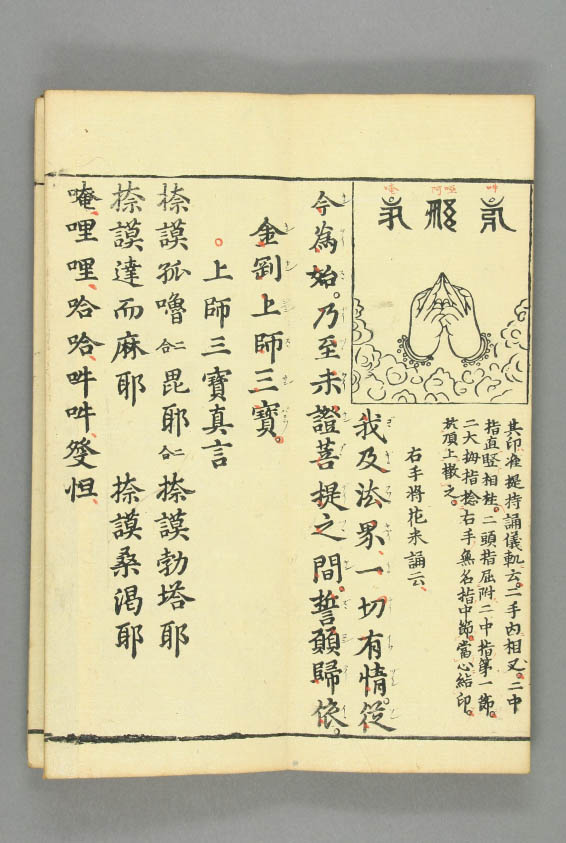 吽
阿啞
唵
其印准提持誦儀軌云。二手内相叉。二中
指直竪相柱。二頭指屈附二中指第一節。
二大拇指捻右手無名指中節。當心結印。
扵頂上撒之。
右手將花米誦云、
我及法界、一切有情。從
今為始。乃至未證菩提之間。誓願歸依。
金剛上師三寶。
上師三寶真言
捺謨孤嚕二合毘耶二合捺謨勃塔耶
捺謨達而麻耶 捺謨桑渴耶
唵、哩哩、哈哈、吽吽、癹怛、